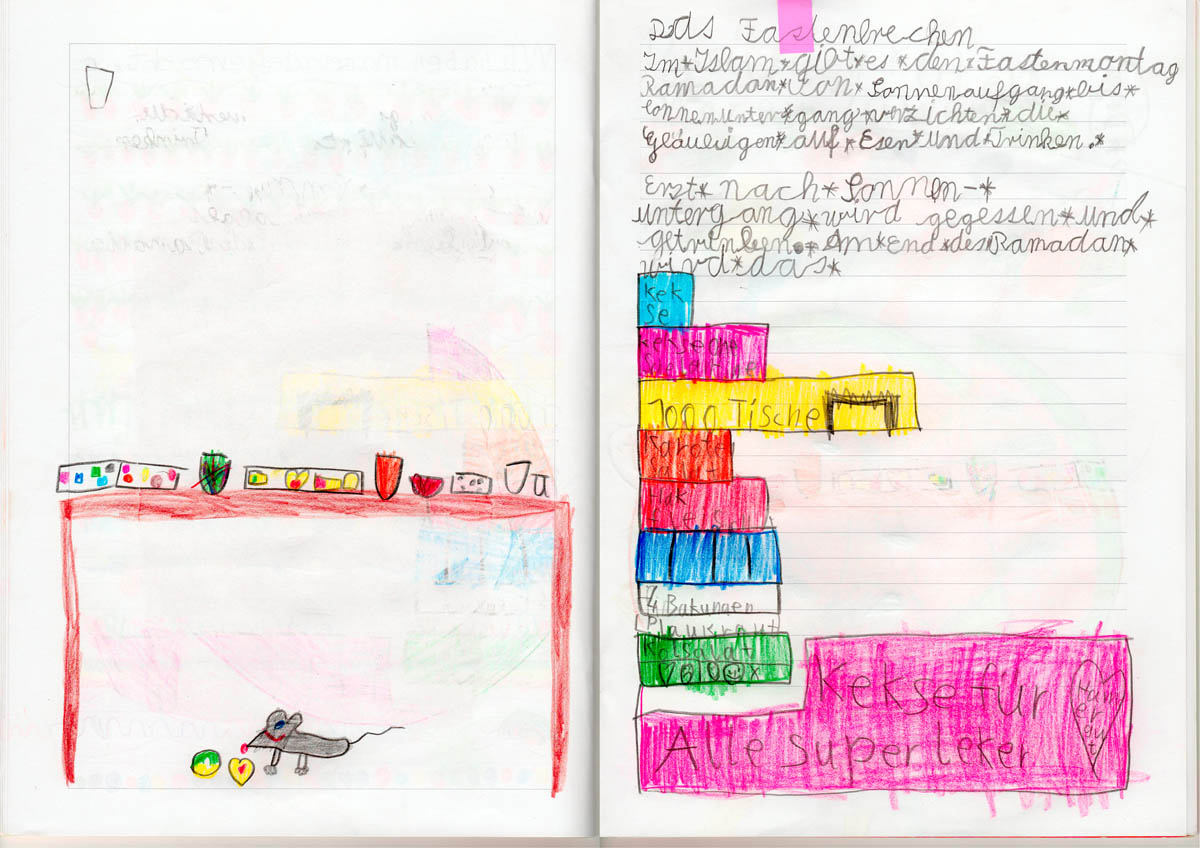 Das Fastenbrechen
Im*Islam*gibt*es*den*Fastenmontag
Ramadan*von*Sonnenaufgang*bis*
Sonnenunter*gang*verzichten*die*
Gläuvigen*auf*Esen*und*Trinken.*
Erzt*nach*Sonnen-*
untergang*wird gegessen*und*
getrinken.*Am*End*des*Ramadan*
wird*das*
kek
se
1000 Tische
Karote
salat
4 Bakungen
Blaukraut
Kolsalat
Kekse für
Alle super leker